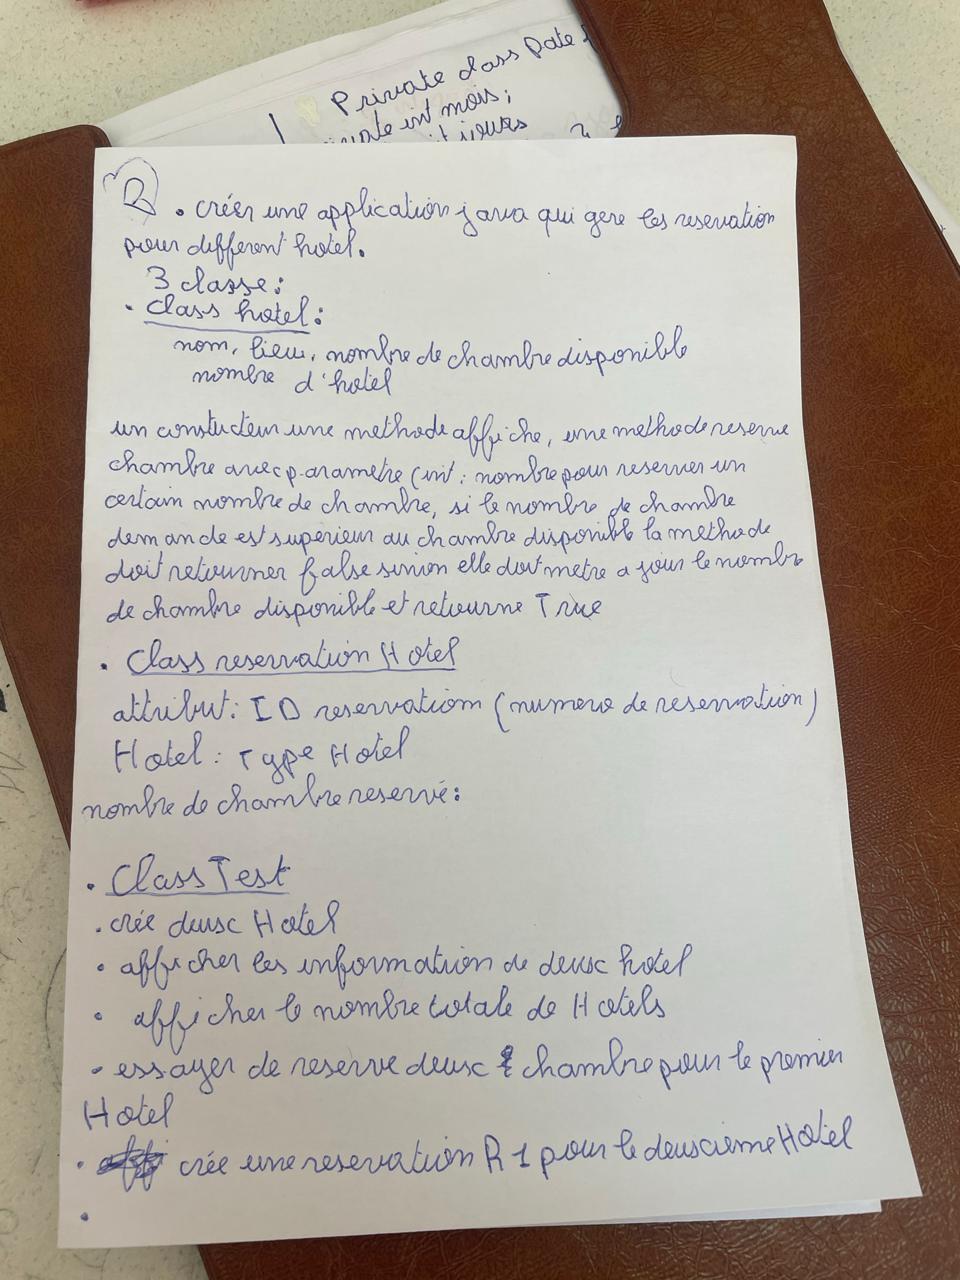 Private class Date
private int mois;
int jours
R . créer une application java qui gere les reservation
pour different hotel.
3 classe:
. class hotel:
nom, lieu, nombre de chambre disponible
nombre d'hotel
un constucteur une methode affiche, une methode reserve
chambre avec parametre (int : nombre pour reserver un
certain nombre de chambre, si le nombre de chambre
demande est superieur au chambre disponible la methode
doit retourner false sinion elle doit metre a jour le nombre
de chambre disponible et retourne True
. Class reservation Hotel
attribut: ID reservation (numero de reservation)
Hotel : Type Hotel
nombre de chambre reservé:
. Class Test
. crée deux Hotel
. afficher les information de deux hotel
. afficher le nombre totale de Hotels
. essayer de reserve deux chambre pour le premier
Hotel
. crée une reservation R1 pour le deuxieme Hotel
.